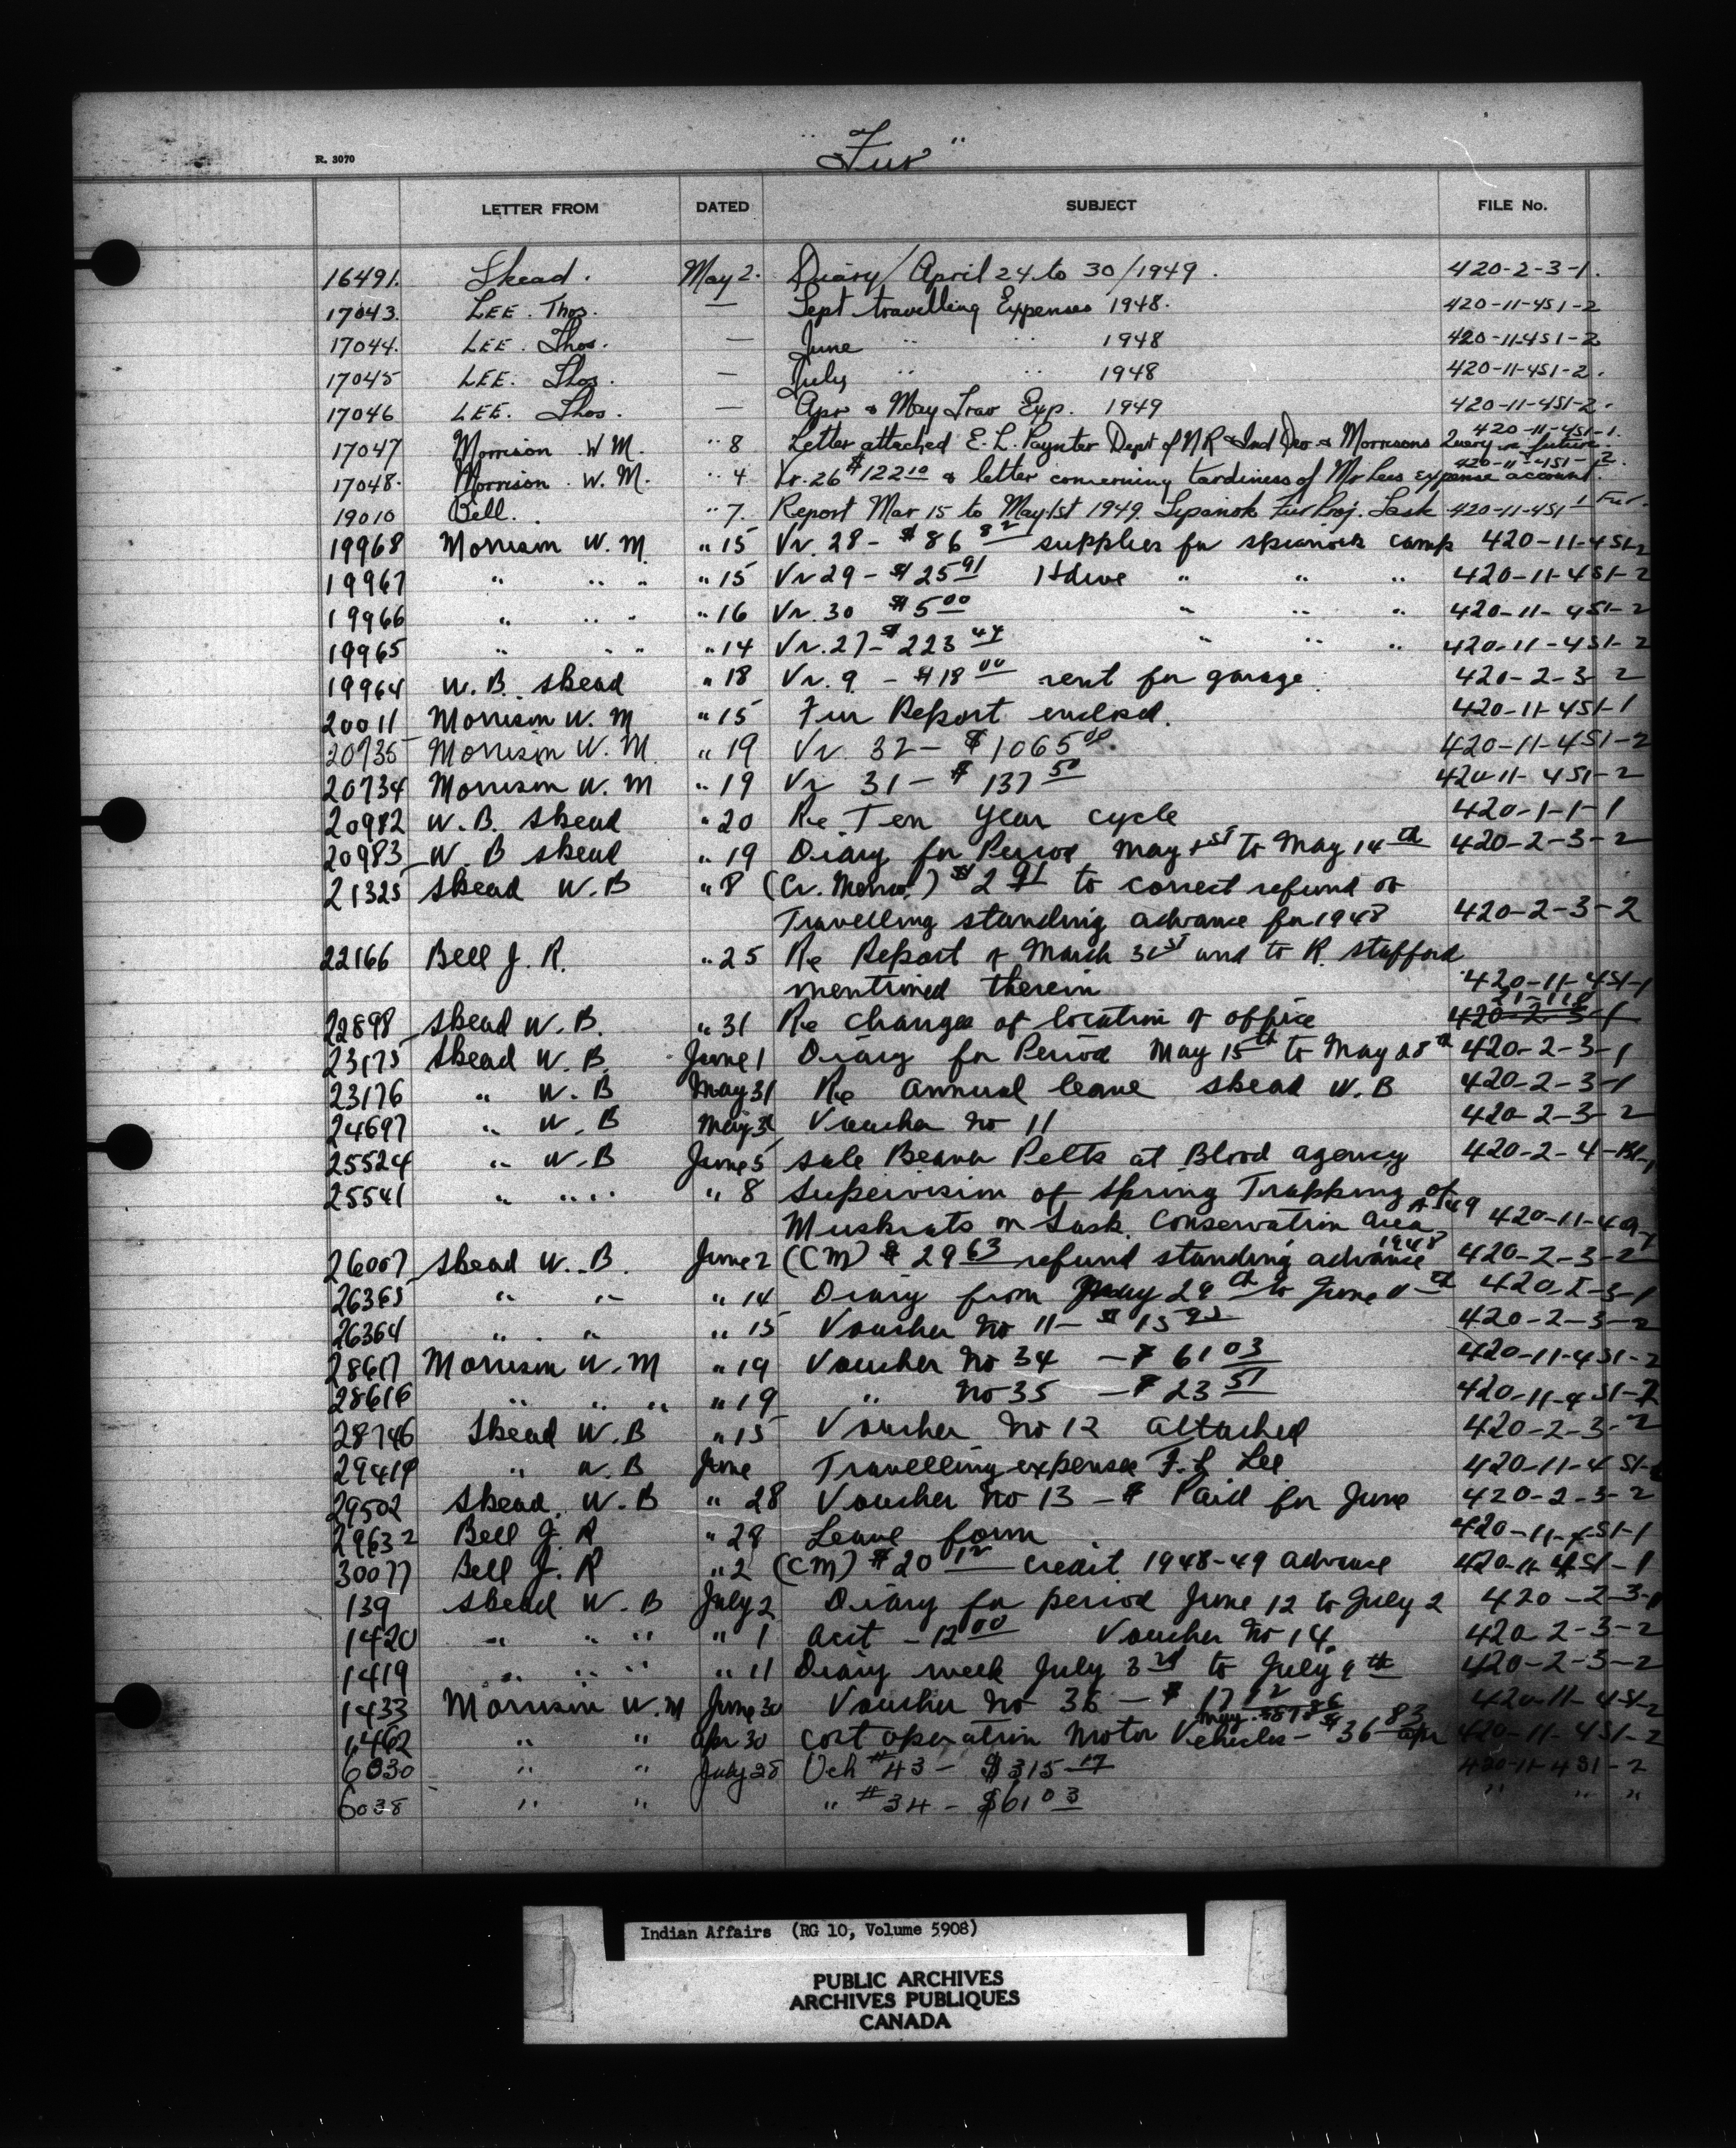 R. 3070
"Fur"
LETTER FROM DATED SUBJECT FILE No.
16491. Skead. May 2. Diary/April 24 to 30/1949. 420-2-3-1.
17043. LEE. Thos. — Sept travelling Expenses 1948. 420-11-451-2
17044. LEE. Thos. — June " " 1948 420-11-451-2
17045 LEE. Thos. — July " " 1948 420-11-451-2.
17046 LEE. Thos. — Apr & May Trav Exp. 1949 420-11-451-2.
420-11-451-1.
17047 Morrison W M. " 8 Letter attached E. L. Paynter Dept of N R & Ind Dev & Morrisons Query re future.
420-11-451-2.
17048. Morrison. W. M. " 4 Vr. 26 $122 10 & letter concerning tardiness of Mr Lees expense account.
19010 Bell. " 7. Report Mar 15 to May 1st 1949. Sepanok Fur Proj. Sask 420-11-451-1 Fur.
19968 Morrison W. M. " 15 Vr. 28 - $86 82 supplies for camp 420-11-451-2
19967 " " " " 15 Vr 29 - $25 91 " " " 420-11-451-2
19966 " " " " 16 Vr. 30 $5 00 " " " 420-11-451-2
19965 " " " " 14 Vr. 27 - $223 44 " " " 420-11-451-2
19964 W. B. Skead " 18 Vr. 9 - $18 00 rent for garage 420-2-3-2
20011 Morrison W. M " 15 Fur Report enclosed. 420-11-451-1
20735 Morrison W. M. " 19 Vr. 32 - $1065 00. 420-11-451-2
20734 Morrison W. M " 19 Vr 31 - $137 50 420-11-451-2
20982 W. B. Skead " 20 Re Ten year cycle 420-1-1-1
20983 W. B Skead " 19 Diary for Period May 1st to May 14th 420-2-3-2
21325 Skead W. B " 8 (Cr. Memo.) $2 91 to correct refund of
Travelling standing advance for 1948 420-2-3-2
22166 Bell J. R. " 25 Re Report of March 31st and to R. Stafford
mentioned therein 420-11-451-1
22898 Skead W. B. " 31 Re change of location of office 420-2-3-1
23175 Skead W. B. June 1 Diary for Period May 15th to May 28th 420-2-3-1
23176 " W. B May 31 Re annual leave Skead W. B 420-2-3-1
24697 " W. B May 31 Voucher No 11 420-2-3-2
25524 " W. B June 5 Sale Beaver Pelts at Blood agency 420-2-4-Bl-1
25541 " " " " 8 Supervision of Spring Trapping of
Muskrats on Sask. Conservation area 1949 420-11-409-1
26007 Skead W. B. June 2 (CM) $29 63 refund standing advance 1948 420-2-3-2
26365 " " " 14 Diary from May 29th to June 11th 420-2-3-1
26364 " " " 15 Voucher No 11 - $15 420-2-3-2
28617 Morrison W. M " 19 Voucher No 34 - $61 03 420-11-451-2
28616 " " " " 19 " No 35 - $23 51 420-11-451-2
28746 Skead W. B " 15 Voucher No 12 attached 420-2-3-2
29419 " W. B June Travelling expenses Lee 420-11-451-
29502 Skead W. B " 28 Voucher No 13 - $ Paid for June 420-2-3-2
29632 Bell J. R " 28 Leave form 420-11-451-1
30077 Bell J. R " 2 (CM) $20 12 credit 1948-49 advance 420-11-451-1
139 Skead W. B July 2 Diary for period June 12 to July 2 420-2-3-1
1420 " " " " 1 acct - 12 00 Voucher No 14. 420-2-3-2
1419 " " " " 11 Diary week July 3rd to July 9th 420-2-3-2
1433 Morrison W. M June 30 Voucher No 36 - $17 12 420-11-451-2
1462 " " Apr 30 Cost operation Motor Vehicles - $36 83 Apr May 420-11-451-2
6030 " " July 28 Vch #43 - $315 17 420-11-451-2
6038 " " " #34 - $61 03 " " "
Indian Affairs (RG 10, Volume 5908)
PUBLIC ARCHIVES
ARCHIVES PUBLIQUES
CANADA